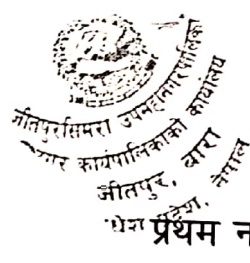 जीतपुरसिमरा उपमहानगरपालिका
नगर कार्यपालिकाको कार्यालय
जीतपुर, बारा
प्रदेश, नेपाल
प्रथम न